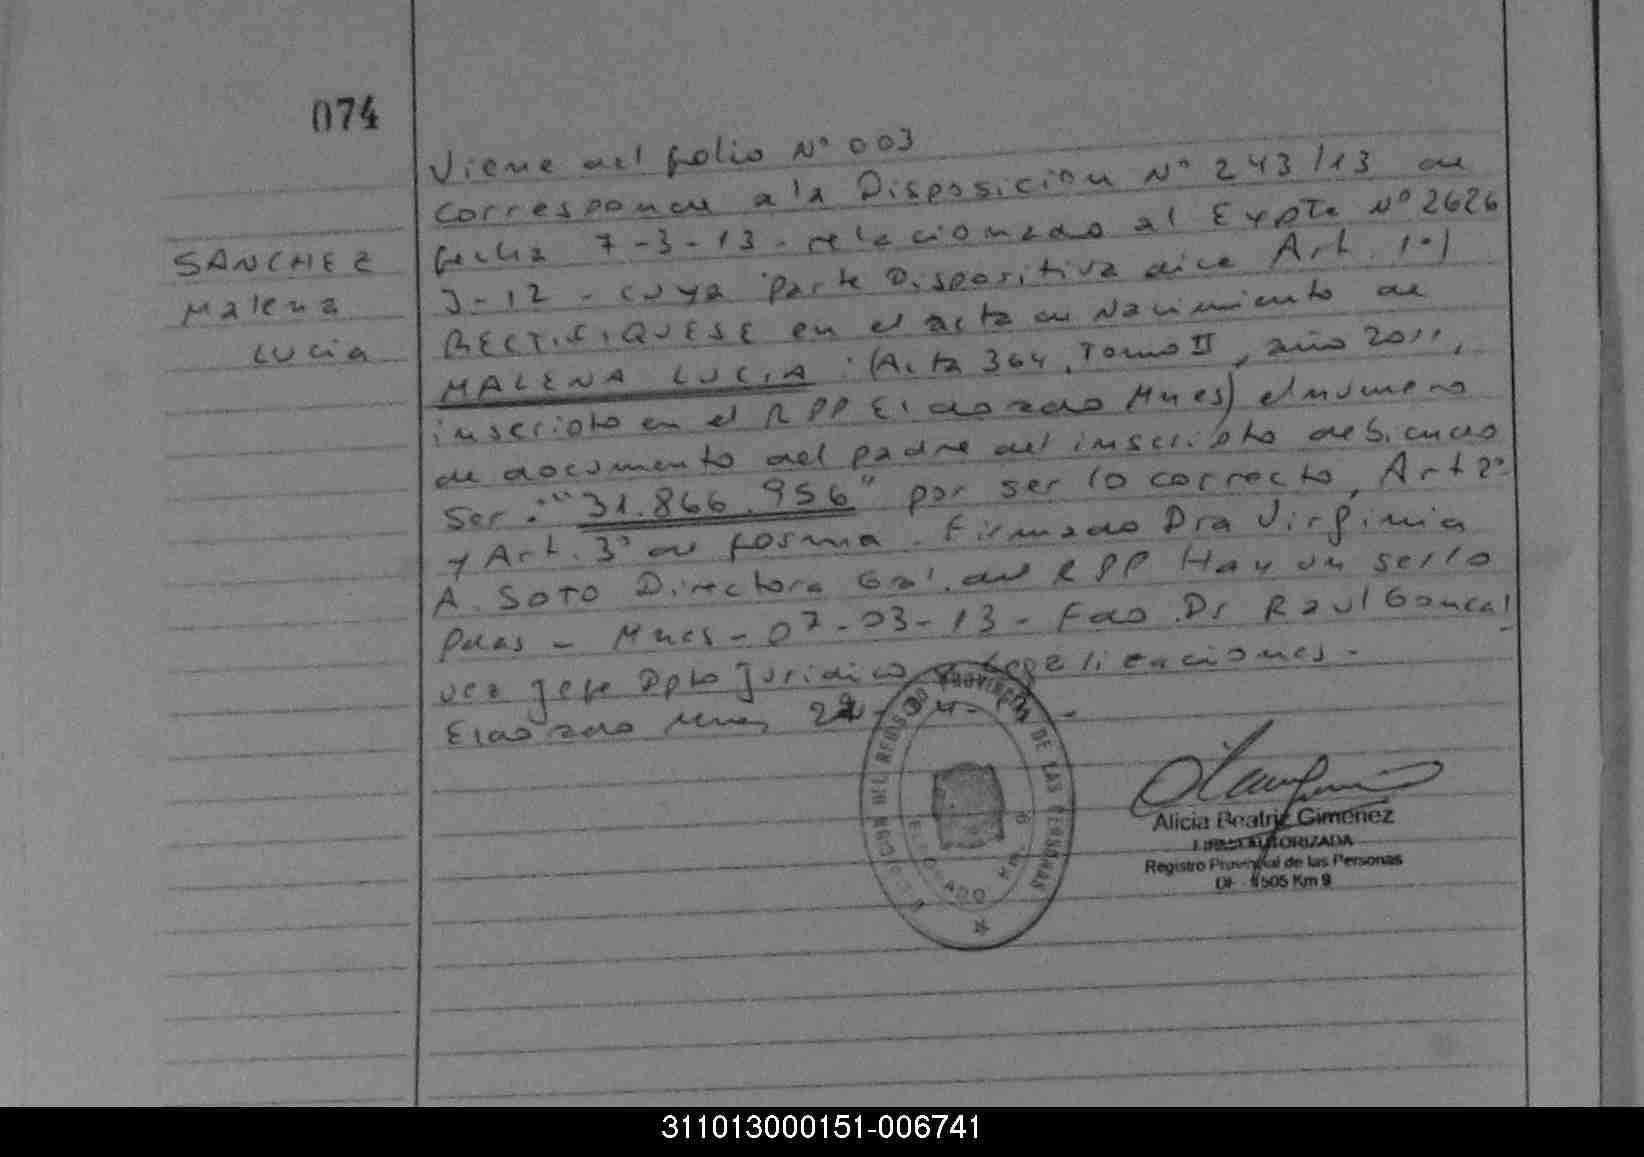 074
Viene del folio Nº 003
Corresponde a la Disposición Nº 243/13 de
fecha 7-3-13 - relacionado al Expte Nº 2626
J-12 - cuya parte Dispositiva dice Art. 1º)
RECTIFIQUESE en el acta de Nacimiento de
MALENA LUCIA : (Acta 364, Tomo II, año 2011,
inscripto en el RPP Eldorado Mnes) el número
de documento del padre del inscripto debiendo
Ser: "31.866.956" por ser lo correcto, Art 2º
y Art. 3º de forma. Firmado Dra Virginia
A. SOTO Directora Gral. del RPP Hay un sello
Pdas - Mnes - 07-03-13 - Fdo. Dr Raul Goncal
vez Jefe Dpto Juridico y Legalizaciones -
Eldorado Mnes,
SANCHEZ
Malena
Lucia
DEL REGISTRO PROVINCIAL DE LAS PERSONAS
ELDORADO
Alicia Beatriz Gimenez
FIRMA AUTORIZADA
Registro Provincial de las Personas
Km 9
311013000151-006741